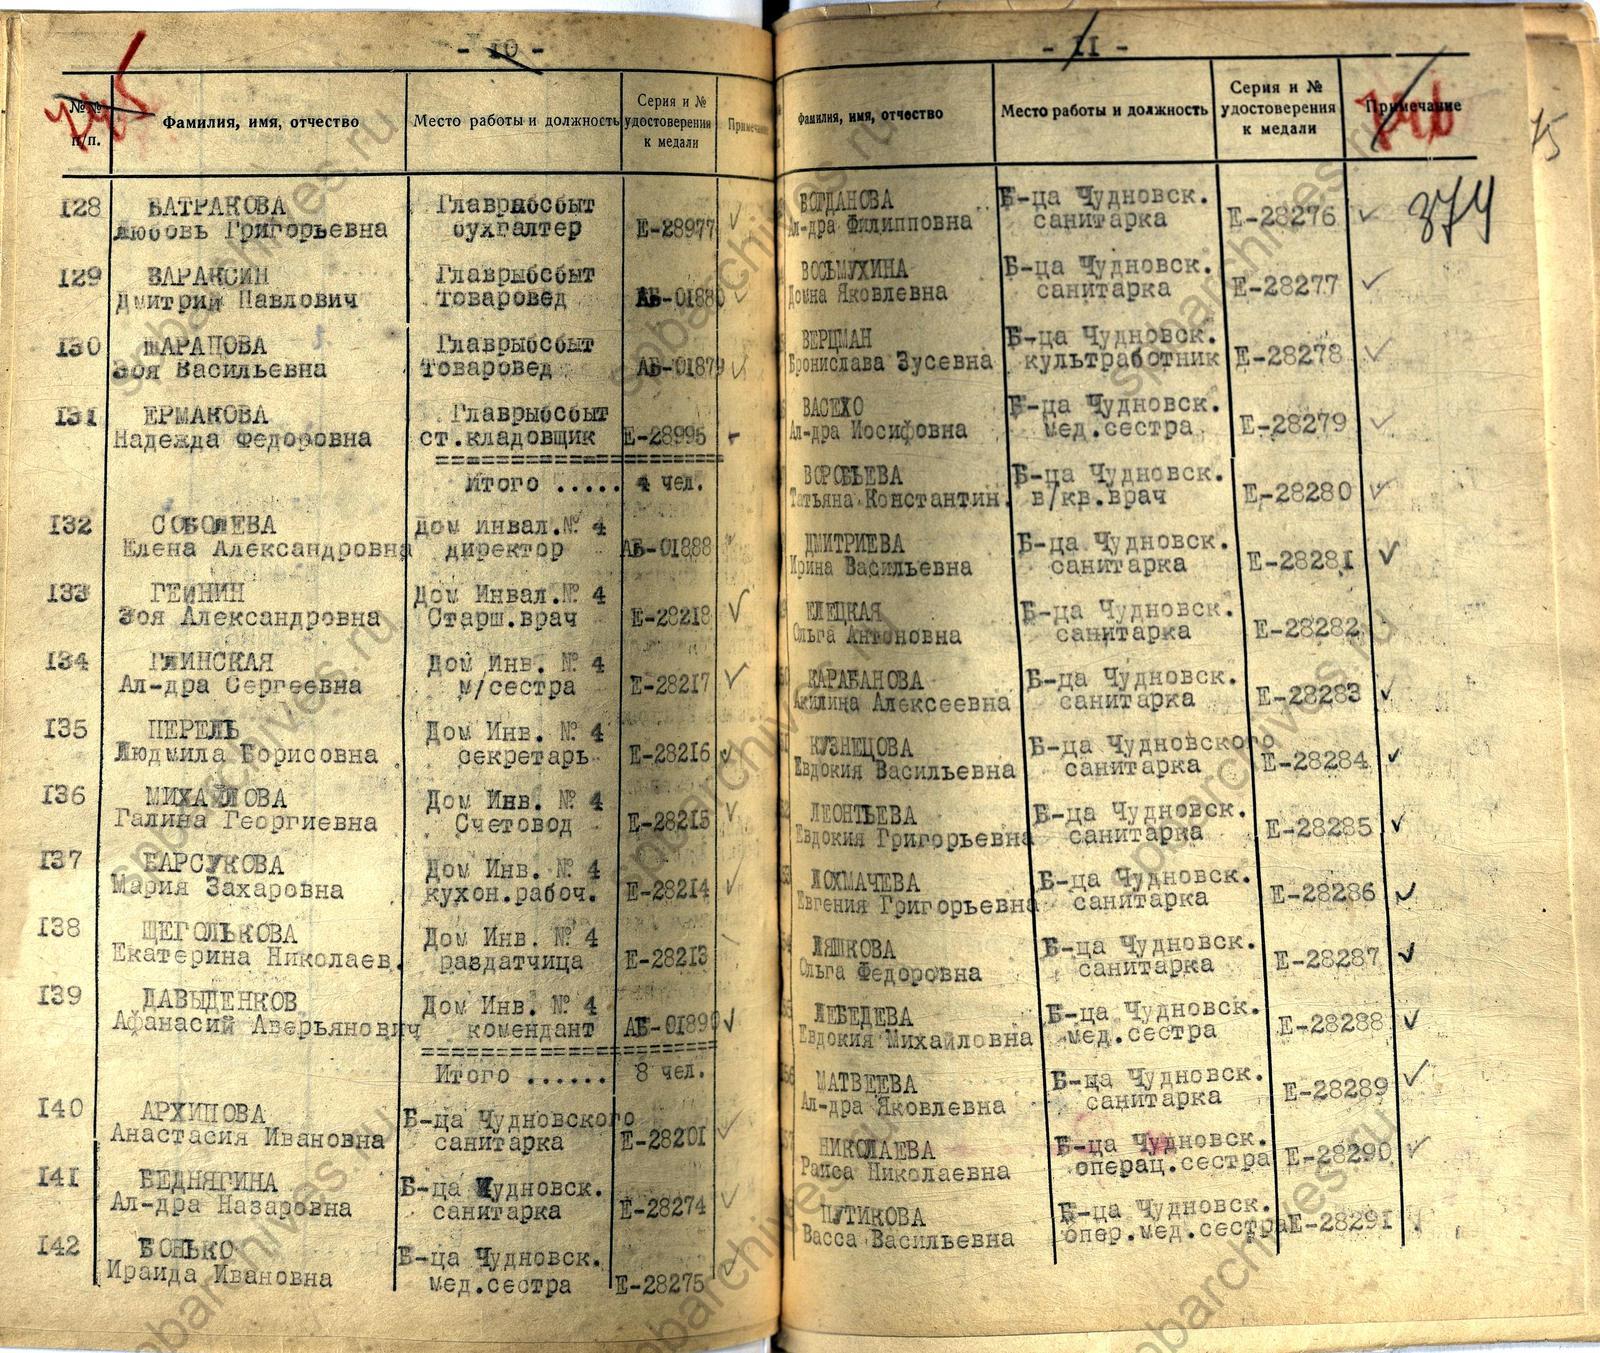 - 10 -
№№ п/п.
Фамилия, имя, отчество
Место работы и должность
Серия и № удостоверения к медали
Примечание
128 БАТРАКОВА Главрыбсбыт
Любовь Григорьевна бухгалтер Е-28977
129 ВАРАКСИН Главрыбсбыт
Дмитрий Павлович товаровед АБ-01880
130 ШАРАПОВА Главрыбсбыт
Зоя Васильевна товаровед АБ-01879
131 ЕРМАКОВА Главрыбсбыт
Надежда Федоровна ст.кладовщик Е-28995
Итого ..... 4 чел.
132 СОБОЛЕВА Дом инвал.№ 4
Елена Александровна директор АБ-01888
133 ГЕЙНИН Дом Инвал.№ 4
Зоя Александровна Старш.врач Е-28218
134 ГЛИНСКАЯ Дом Инв. № 4
Ал-дра Сергеевна м/сестра Е-28217
135 ПЕРЕЛЬ Дом Инв. № 4
Людмила Борисовна секретарь Е-28216
136 МИХАЙЛОВА Дом Инв. № 4
Галина Георгиевна Счетовод Е-28215
137 БАРСУКОВА Дом Инв. № 4
Мария Захаровна кухон.рабоч. Е-28214
138 ЩЕГОЛЬКОВА Дом Инв. № 4
Екатерина Николаев. раздатчица Е-28213
139 ДАВЫДЕНКОВ Дом Инв. № 4
Афанасий Аверьянович комендант АБ-01890
Итого ...... 8 чел.
140 АРХИПОВА Б-ца Чудновского
Анастасия Ивановна санитарка Е-28201
141 БЕДНЯГИНА Б-ца Чудновск.
Ал-дра Назаровна санитарка Е-28274
142 БОНЬКО Б-ца Чудновск.
Ираида Ивановна мед.сестра Е-28275
- 11 -
Фамилия, имя, отчество
Место работы и должность
Серия и № удостоверения к медали
Примечание
75
374
БОГДАНОВА Б-ца Чудновск.
Ал-дра Филипповна санитарка Е-28276
ВОСЬМУХИНА Б-ца Чудновск.
Домна Яковлевна санитарка Е-28277
ВЕРЦМАН Б-ца Чудновск.
Бронислава Зусевна культработник Е-28278
ВАСЕХО Б-ца Чудновск.
Ал-дра Иосифовна мед.сестра Е-28279
ВОРОБЬЕВА Б-ца Чудновск.
Татьяна Константин. в/кв.врач Е-28280
ДМИТРИЕВА Б-ца Чудновск.
Ирина Васильевна санитарка Е-28281
ЕЛЕЦКАЯ Б-ца Чудновск.
Ольга Антоновна санитарка Е-28282
КАРАБАНОВА Б-ца Чудновск.
Акилина Алексеевна санитарка Е-28283
КУЗНЕЦОВА Б-ца Чудновского
Евдокия Васильевна санитарка Е-28284
ЛЕОНТЬЕВА Б-ца Чудновск.
Евдокия Григорьевна санитарка Е-28285
ЛОХМАЧЕВА Б-ца Чудновск.
Евгения Григорьевна санитарка Е-28286
ЛЯШКОВА Б-ца Чудновск.
Ольга Федоровна санитарка Е-28287
ЛЕБЕДЕВА Б-ца Чудновск.
Евдокия Михайловна мед.сестра Е-28288
МАТВЕЕВА Б-ца Чудновск.
Ал-дра Яковлевна санитарка Е-28289
НИКОЛАЕВА Б-ца Чудновск.
Раиса Николаевна операц.сестра Е-28290
ПУТИКОВА Б-ца Чудновск.
Васса Васильевна опер.мед.сестра Е-28291
spbarchives.ru